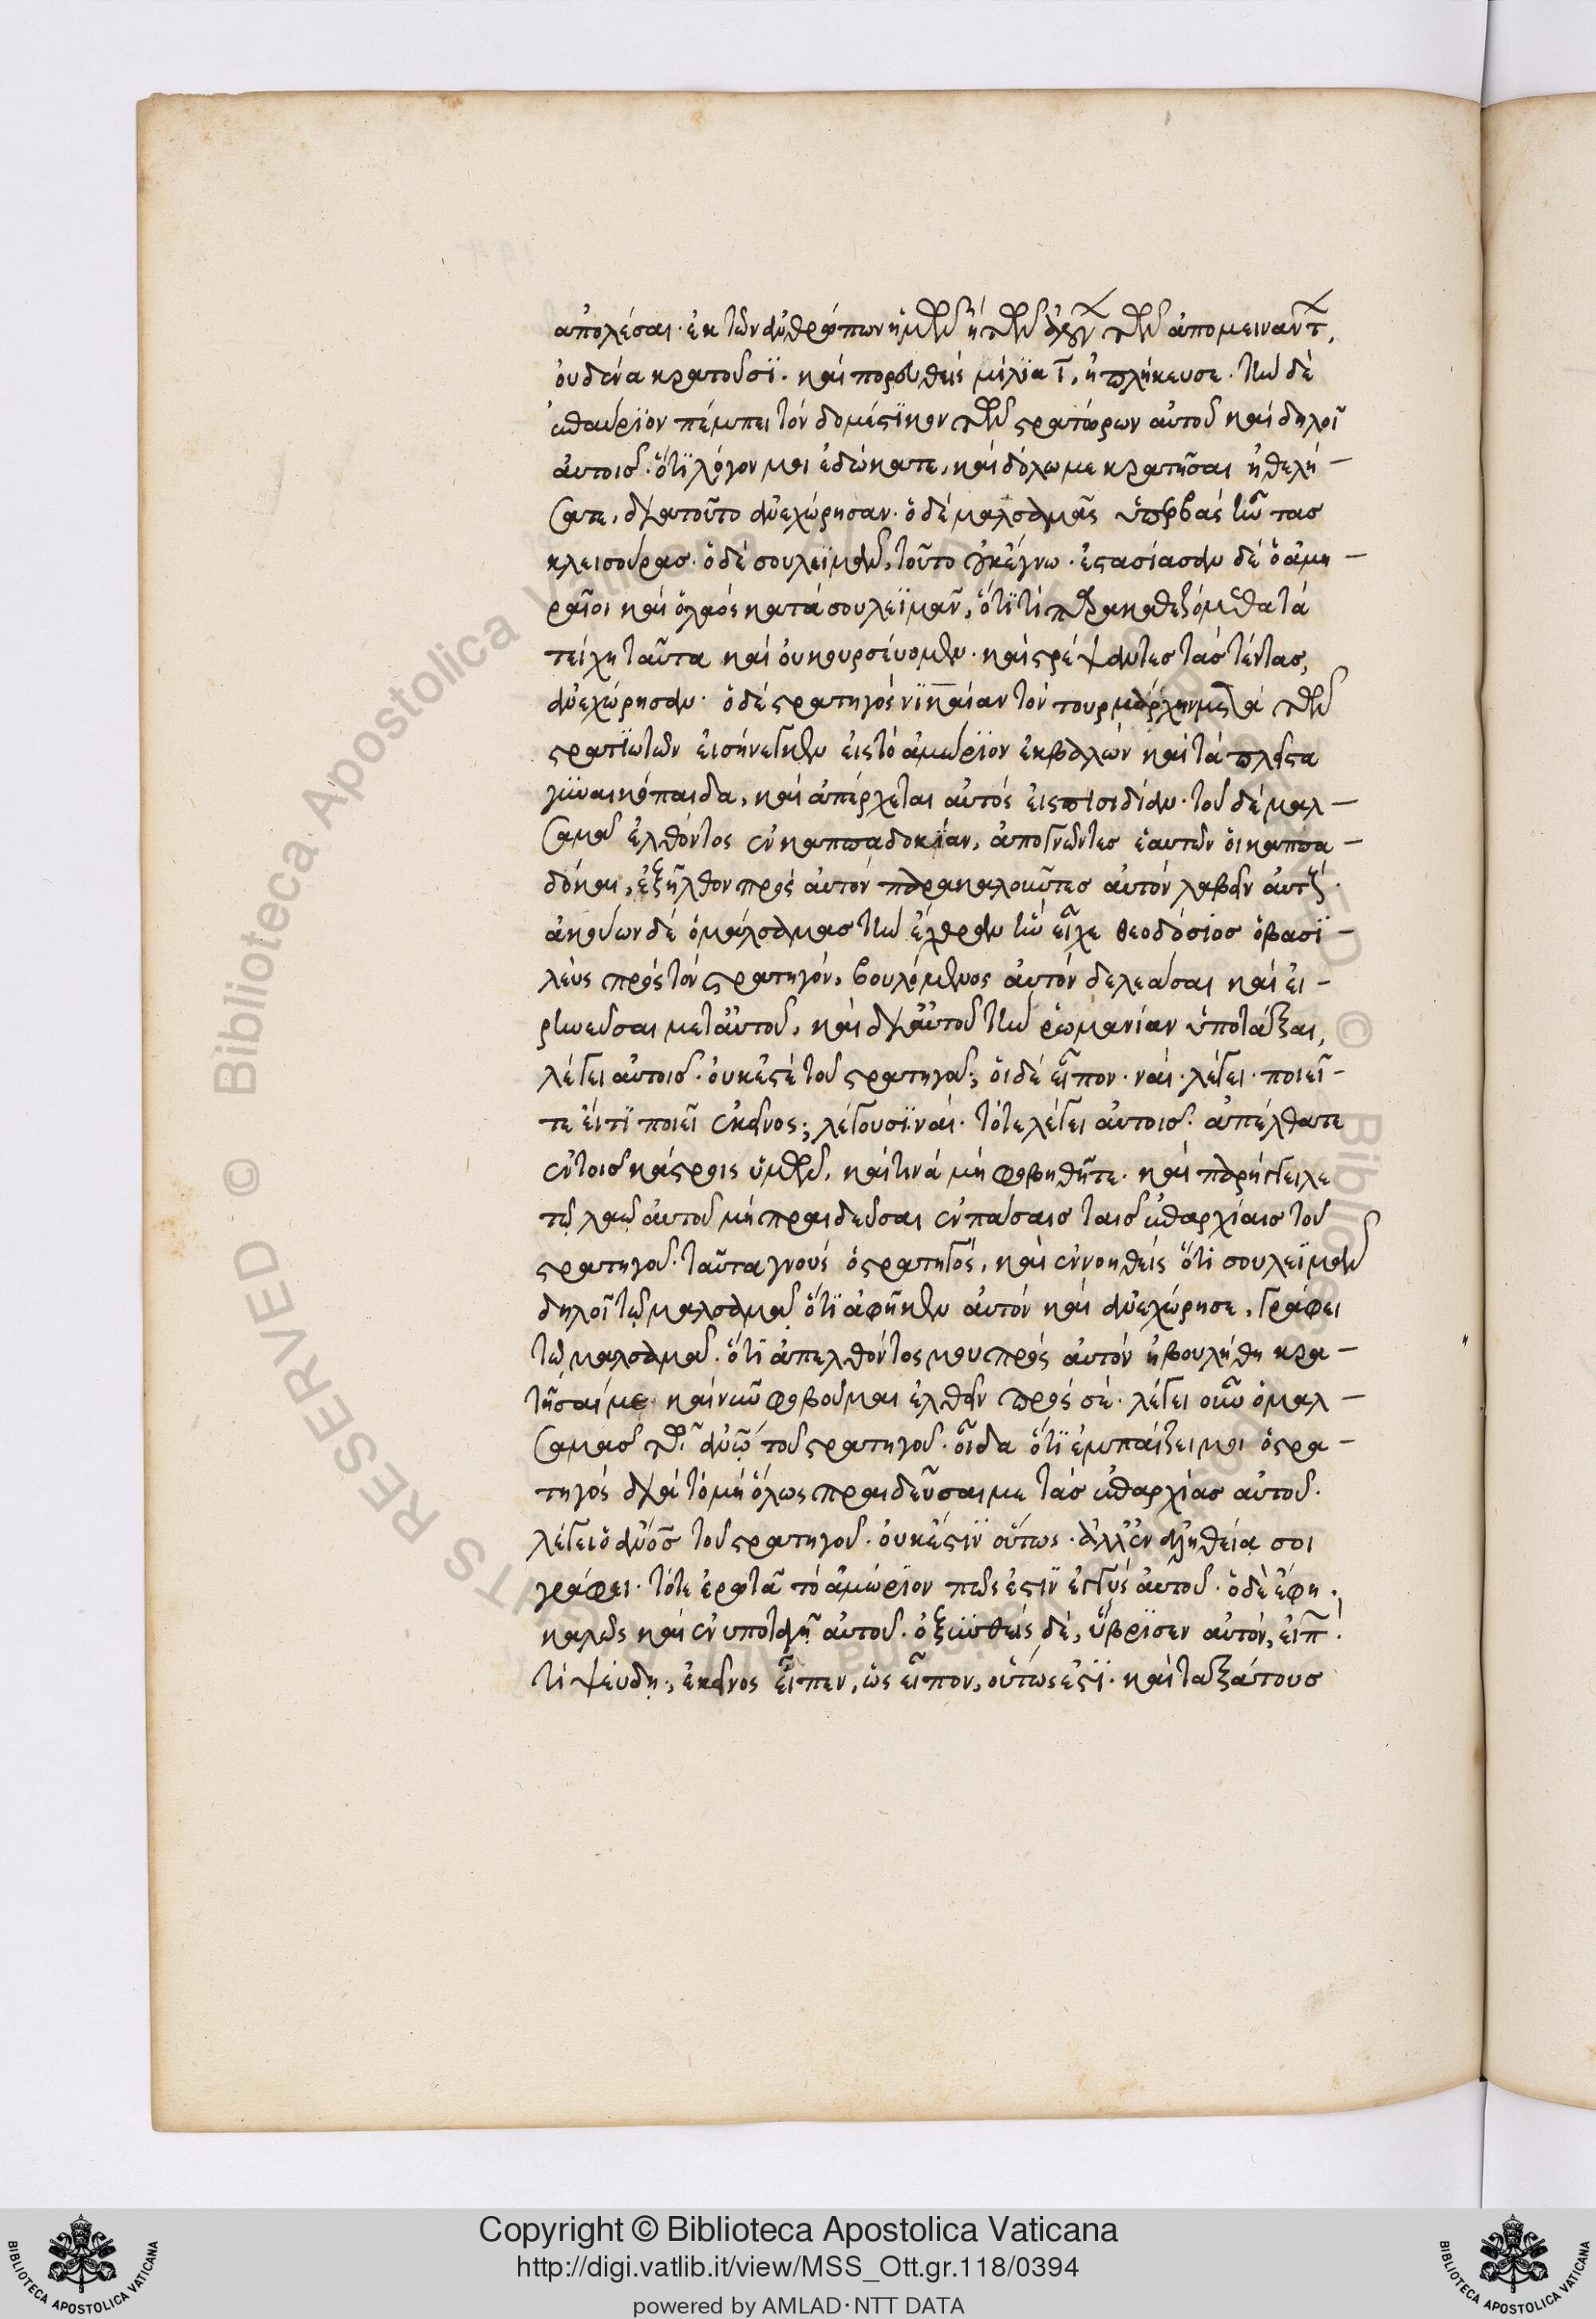 ἀπολέσαι· ἐκ τῶν ἀνθρώπων ἡμῶν ἢ τῶν τῶν ἀπομειναντ,
οὐδένα κρατοῦσϊ· καὶ πορευθεὶς μίλϊα ϊ, ἠπλήκευσε· τὴν δὲ
ἐπαύριον πέμπει τὸν δομέστϊκον τῶν στρατόρων αὐτοῦ καὶ δηλοῖ
αὐτοῖς· ὅτϊ λόγον μοι ἐδώκατε, καὶ δόλω με κρατῆσαι ἠθελή–
σατε, διατοῦτο ἀνεχώρησαν· ὁ δὲ μαλσαλμᾶς ὑπερβὰς ἦν τὰς
κλεισούρας· ὁ δὲ σουλεϊμὰν, τοῦτο οὐκ ἔγνω· ἐστασίασαν δὲ ὁ ἀμη–
ραῖοι καὶ ὁ λαὸς κατὰ σουλεϊμὰν, ὅτϊ τί παρακαθεζόμεθα τὰ
τείχη ταῦτα καὶ οὐ κουρσεύομεν· καὶ στρέψαντες τὰς τέντας,
ἀνεχώρησαν· ὁ δὲ στρατηγὸς νϊκαίαν τὸν τουρμάρχην μετὰ τῶν
στρατϊωτῶν εἰσήνεγκεν εἰς τὸ ἀμώριον ἐκβαλὼν καὶ τὰ πλεῖστα
γϋναικόπαιδα, καὶ ἀπέρχεται αὐτὸς εἰς πισιδίαν· τοῦ δὲ μαλ–
σαμᾶ ἐλθόντος ἐν καππαδοκίαν, ἀπογνῶντες ἑαυτῶν οἱ καππα–
δόκαι, ἐξῆλθον πρὸς αὐτὸν παρακαλοῦντες αὐτὸν λαβεῖν αὐτούς·
ἀκούων δὲ ὁ μάλσαλμας τὴν ἔχθραν ἣν εἶχε θεοδόσιος ὁ βασϊ–
λεὺς πρὸς τὸν στρατηγὸν, βουλόμενος αὐτὸν δελεάσαι καὶ εἰ–
ρηνεῦσαι μετ αὐτοῦ, καὶ δι αὐτοῦ τὴν ῥωμανίαν ὑποτάξαι,
λέγει αὐτοῖς· οὐκ ἐστὲ τοῦ στρατηγοῦ; οἱ δὲ εἶπον· ναί· λέγει· ποιεῖ–
τε εἴ τϊ ποιεῖ ἐκεῖνος; λέγουσϊ· ναί· τότε λέγει αὐτοῖς· ἀπέλθατε
ἐν τοῖς κάστροις ὑμῶν, καὶ τινὰ μὴ φοβηθῆτε· καὶ παρήγγειλε
τῷ λαῷ αὐτοῦ μὴ πραιδεῦσαι ἐν πάσαις ταῖς ἐπαρχίαις τοῦ
στρατηγοῦ· ταῦτα γνοὺς ὁ στρατηγὸς, καὶ ἐννοηθεὶς ὅτϊ σουλεϊμὰν
δηλοῖ τῷ μαλσαλμᾷ ὅτϊ ἀφῆκεν αὐτὸν καὶ ἀνεχώρησε, γράφει
τῷ μαλσαλμᾷ· ὅτϊ ἀπελθόντος μου πρὸς αὐτὸν ἠβουλήθη κρα–
τῆσαί με καὶ νῦν φοβοῦμαι ἐλθεῖν πρὸς σέ· λέγει οὖν ὁ μαλ–
σαμᾶς τῷ ἀνῷ τοῦ στρατηγοῦ· οἶδα ὅτϊ ἐμπαίζει μοι ὁ στρα–
τηγὸς διὰ τὸ μὴ ὅλως πραιδεῦσαι με τὰς ἐπαρχίας αὐτοῦ·
λέγει ὁ ἀνὸς τοῦ στρατηγοῦ· οὐκ ἔστϊν οὕτως· ἀλλ ἐν ἀληθείᾳ σοι
γράφει· τότε ἐρωτᾶ τὸ ἀμώρϊον πῶς ἐστϊν ἐγγὺς αὐτοῦ· ὁ δὲ ἔφη·
καλῶς καὶ ἐν υποταγῆ αὐτοῦ· ὀξυνθεὶς δὲ, ὕβρϊσεν αὐτὸν, εἰπ·
τί ψεύδη; ἐκεῖνος εἶπεν, ὡς εἶπον, οὕτως ἐστϊ· καὶ ταξάτους